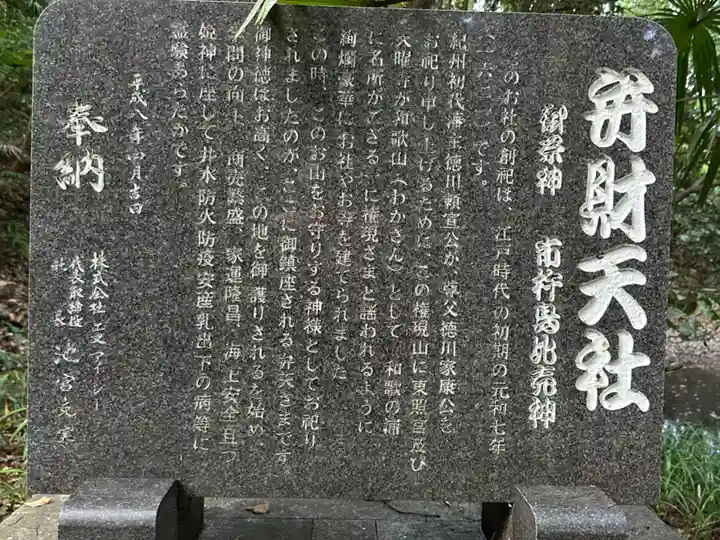 弁財天社
御祭神 市杵島比売神
このお社の創祀は、江戸時代の初期の元和七年
(一六二一)です。
紀州初代藩主徳川頼宣公が、尊父徳川家康公を
お祀り申し上げるために、この権現山に東照宮及び
天曜寺が和歌山(わかさん)として、和歌の浦
に名所ができる、に権現さまと謡われるように
絢爛豪華にお社やお寺を建てられました
この時、このお山をお守りする神様としてお祀り
されましたのが、ここに御鎮座される弁天さまです。
御神徳はお高く、この地を御護りされるを始め、
学問の向上、商売繁盛、家運隆昌、海上安全且つ
姫神に座して井水防火防疫安産乳出下の病等に
霊験あらたかです。
平成八年四月吉日
奉納
株式会社エヌアイシー
代表取締役
社長 池宮文実